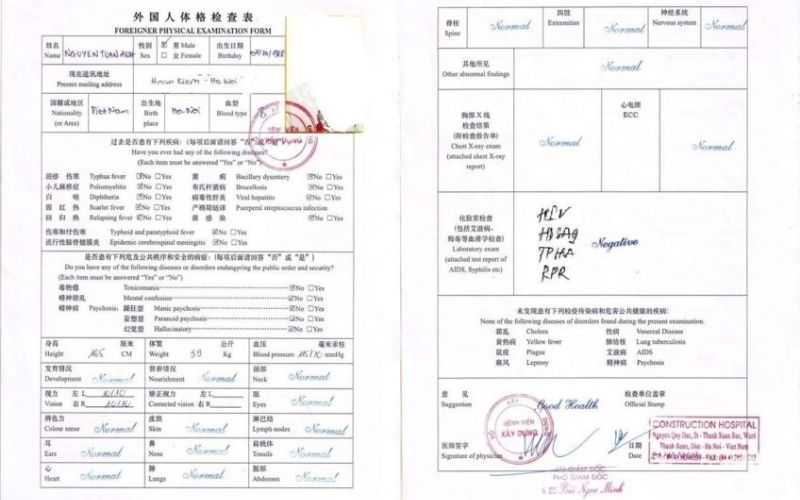 外国人体格检查表
FOREIGNER PHYSICAL EXAMINATION FORM
姓名 Name NGUYEN TUAN ANH 性别 Sex ☑ 男 Male ☐ 女 Female 出生日期 Birthday
现在通讯地址
Present mailing address Hoan Kiem - Ha Noi
国籍或地区 Nationality (or Area) Viet Nam 出生地 Birth place Ha Noi 血型 Blood type B
BỆNH VIỆN
XÂY DỰNG
过去是否患有下列疾病:(每项后面请回答“否”或“是”)
Have you ever had any of the following diseases?
(Each item must be answered “Yes” or “No”)
斑疹伤寒 Typhus fever ☑No ☐Yes 菌痢 Bacillary dysentery ☑No ☐Yes
小儿麻痹症 Poliomyelitis ☑No ☐Yes 布氏杆菌病 Brucellosis ☑No ☐Yes
白喉 Diphtheria ☑No ☐Yes 病毒性肝炎 Viral hepatitis ☑No ☐Yes
猩红热 Scarlet fever ☑No ☐Yes 产褥期链球 Puerperal streptococcus infection
回归热 Relapsing fever ☑No ☐Yes 菌感染 ☑No ☐Yes
伤寒和付伤寒 Typhoid and paratyphoid fever ☑No ☐Yes
流行性脑脊髓膜炎 Epidemic cerebrospinal meningitis ☑No ☐Yes
是否患有下列危及公共秩序和安全的病症:(每项后面请回答“否”或“是”)
Do you have any of the following diseases or disorders endangering the public order and security?
(Each item must be answered “Yes” or “No”)
毒物瘾 Toxicomania ☑No ☐Yes
精神错乱 Mental confusion ☑No ☐Yes
精神病 Psychosis: 躁狂型 Manic psychosis ☑No ☐Yes
妄想型 Paranoid psychosis ☑No ☐Yes
幻觉型 Hallucinatory ☑No ☐Yes
身高 Height 165 厘米 CM 体重 Weight 59 公斤 Kg 血压 Blood pressure 毫米汞柱 mmHg
发育情况 Development Normal 营养情况 Nourishment Normal 颈部 Neck Normal
视力 Vision 左 L 10/10 右 R 10/10 矫正视力 Corrected vision 左 L 右 R 眼 Eyes Normal
辨色力 Colour sense Normal 皮肤 Skin Normal 淋巴结 Lymph nodes Normal
耳 Ears Normal 鼻 Nose Normal 扁桃体 Tonsils Normal
心 Heart Normal 肺 Lungs Normal 腹部 Abdomen Normal
脊柱 Spine Normal 四肢 Extremities Normal 神经系统 Nervous system Normal
其他所见
Other abnormal findings Normal
胸部 X 线
检查结果
(附检查报告单)
Chest X-ray exam
(attached chest X-ray
report)
Normal
心电图
ECC
Normal
化验室检查
(包括艾滋病、
梅毒等血清学检查)
Laboratory exam
(attached test report of
AIDS, Syphilis etc)
HIV
HBsAg
TPHA
RPR
Negative
未发现患有下列检疫传染病和危害公共健康的疾病:
None of the following diseases of disorders found during the present examination.
霍乱 Cholera 性病 Venereal Disease
黄热病 Yellow fever 肺结核 Lung tuberculosis
鼠疫 Plague 艾滋病 AIDS
麻风 Leprosy 精神病 Psychosis
意见
Suggestion Good Health
检查单位盖章
Official Stamp
BỆNH VIỆN
XÂY DỰNG
医师签字
Signature of physician
日期
Date
CONSTRUCTION HOSPITAL
Nguyen Quy Duc, St - Thanh Xuan Bac, Ward
Thanh Xuan, Dist - Ha Noi - Viet Nam
PHÓ GIÁM ĐỐC
Bùi Ngọc Minh